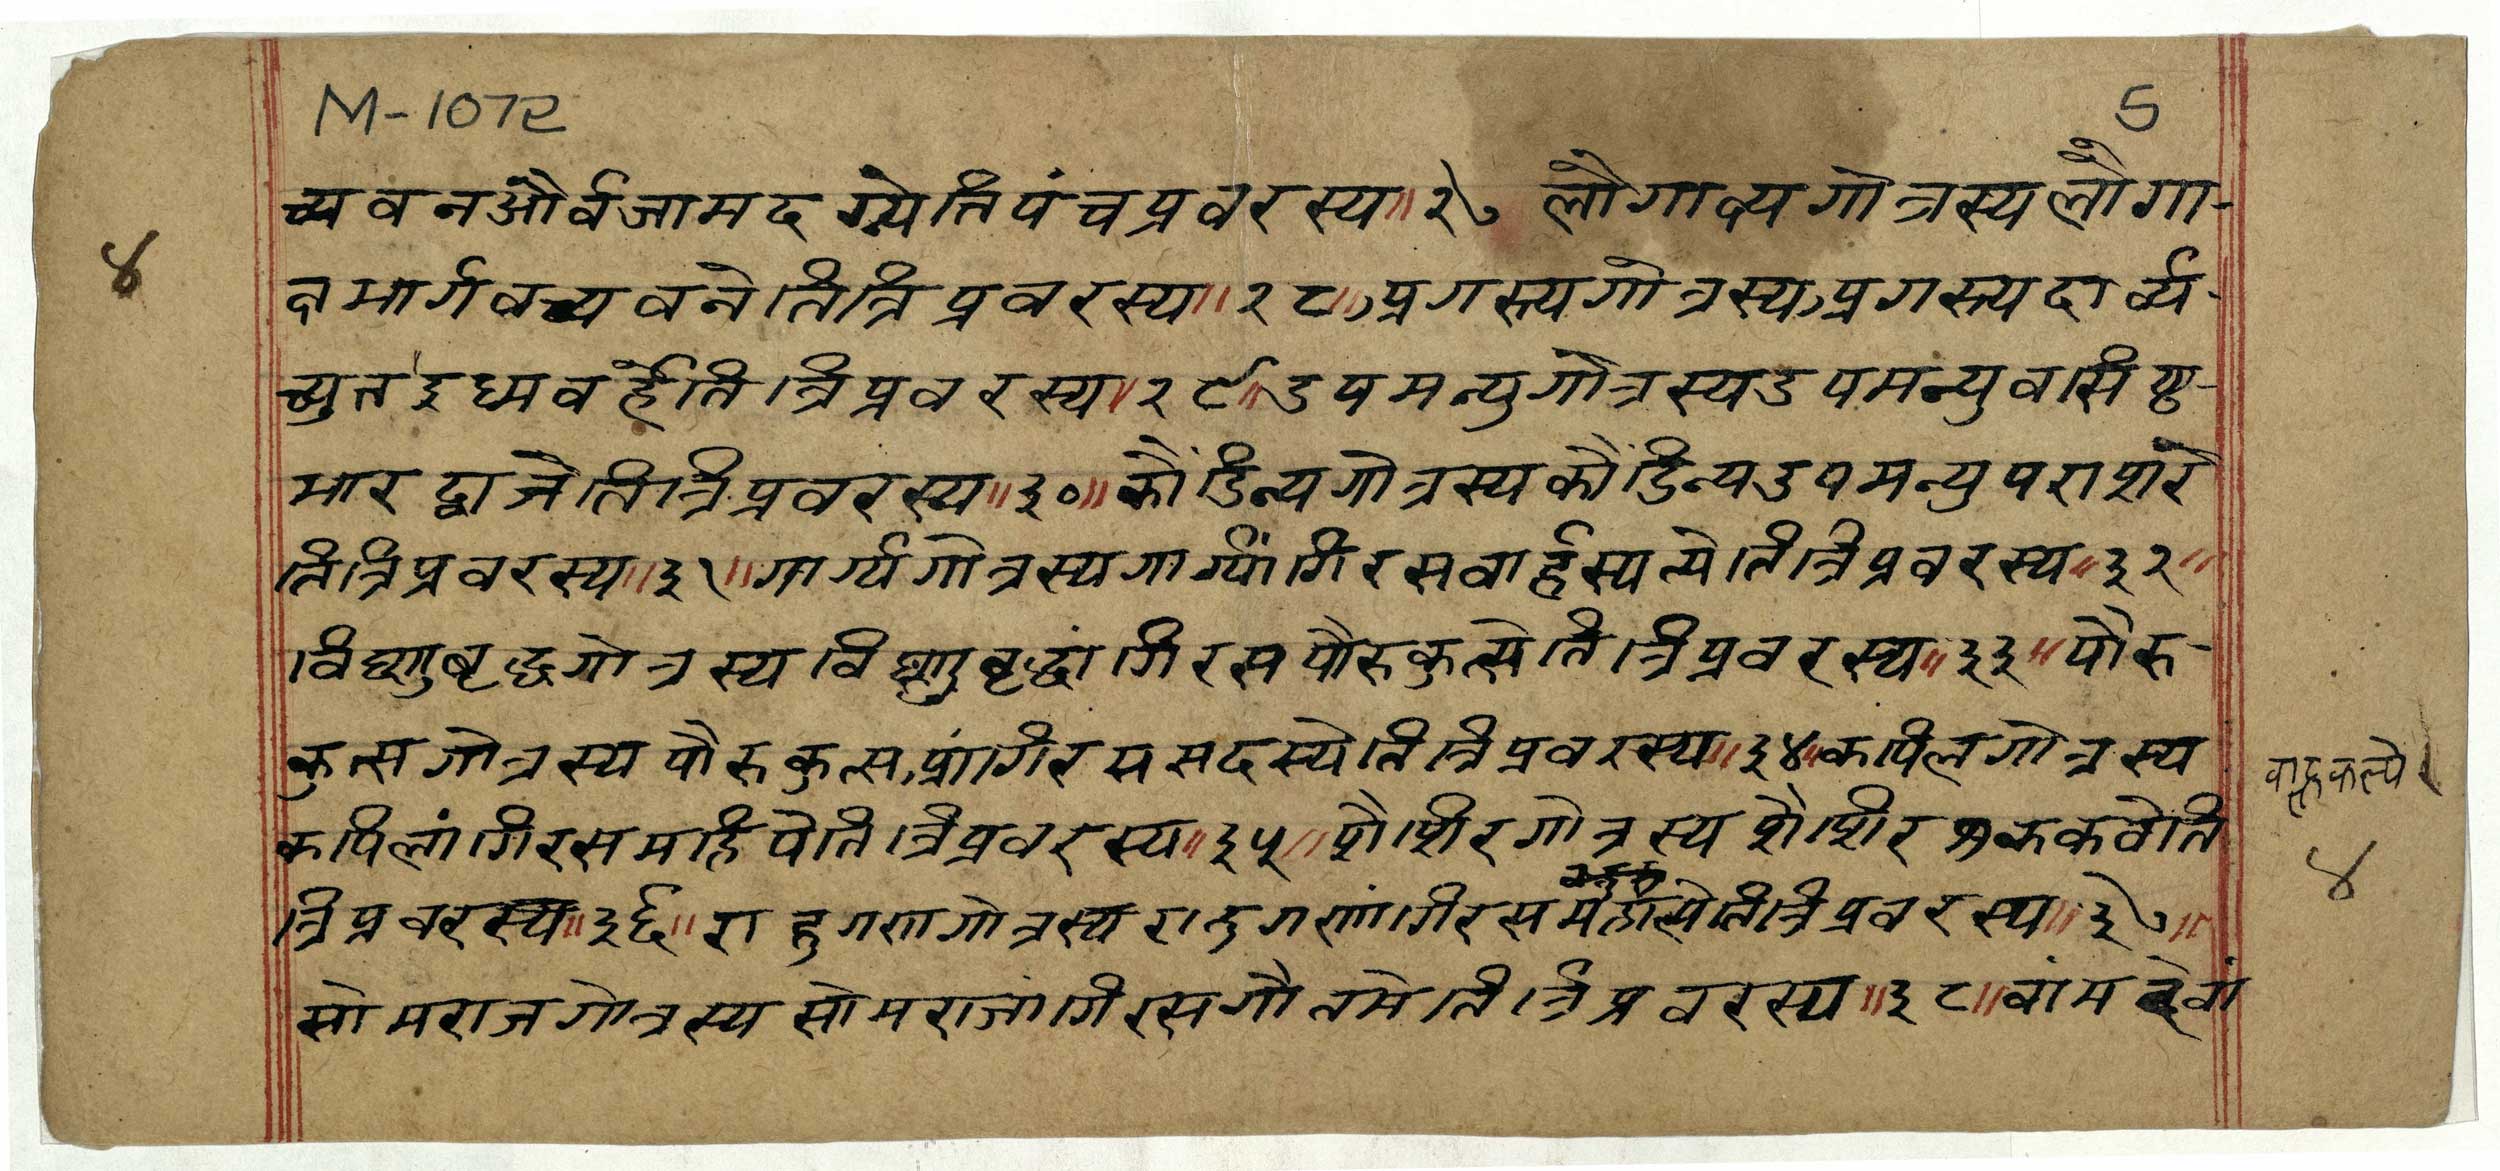 M-1072
5
च्यवनऔर्वजामदग्न्येतिपंचप्रवरस्य॥२७ लौगाक्ष्यगोत्रस्यलौगा-
४
क्षभार्गवच्यवनेतित्रिप्रवरस्य॥२८॥अगस्त्यगोत्रस्यअगस्त्यदार्व्य-
च्युतइध्मवर्हेतित्रिप्रवरस्य॥२९॥उपमन्युगोत्रस्यउपमन्युवासिष्ठ-
भारद्वाजेतित्रिप्रवरस्य॥३०॥कौंडिन्यगोत्रस्यकौंडिन्यउपमन्युपराशरे
तित्रिप्रवरस्य॥३१॥गार्ग्यगोत्रस्यगार्ग्यांगिरसवार्हस्पत्येतित्रिप्रवरस्य॥३२॥
विष्णुवृद्धगोत्रस्यविष्णुवृद्धांगिरसपौरुकुत्सेतित्रिप्रवरस्य॥३३॥पौरु-
कुत्सगोत्रस्यपौरुकुत्सआंगिरससदस्येतित्रिप्रवरस्य॥३४॥कपिलगोत्रस्य
कपिलांगिरसमहिपेतित्रिप्रवरस्य॥३५॥शैशिरगोत्रस्यशैशिर
त्रिप्रवरस्य॥३६॥राहुगणगोत्रस्यराहुगणांगिरस त्रिप्रवरस्य॥३७॥
४
सोमराजगोत्रस्यसोमराजांगिरसगौतमेतित्रिप्रवरस्य॥३८॥वामदेवां